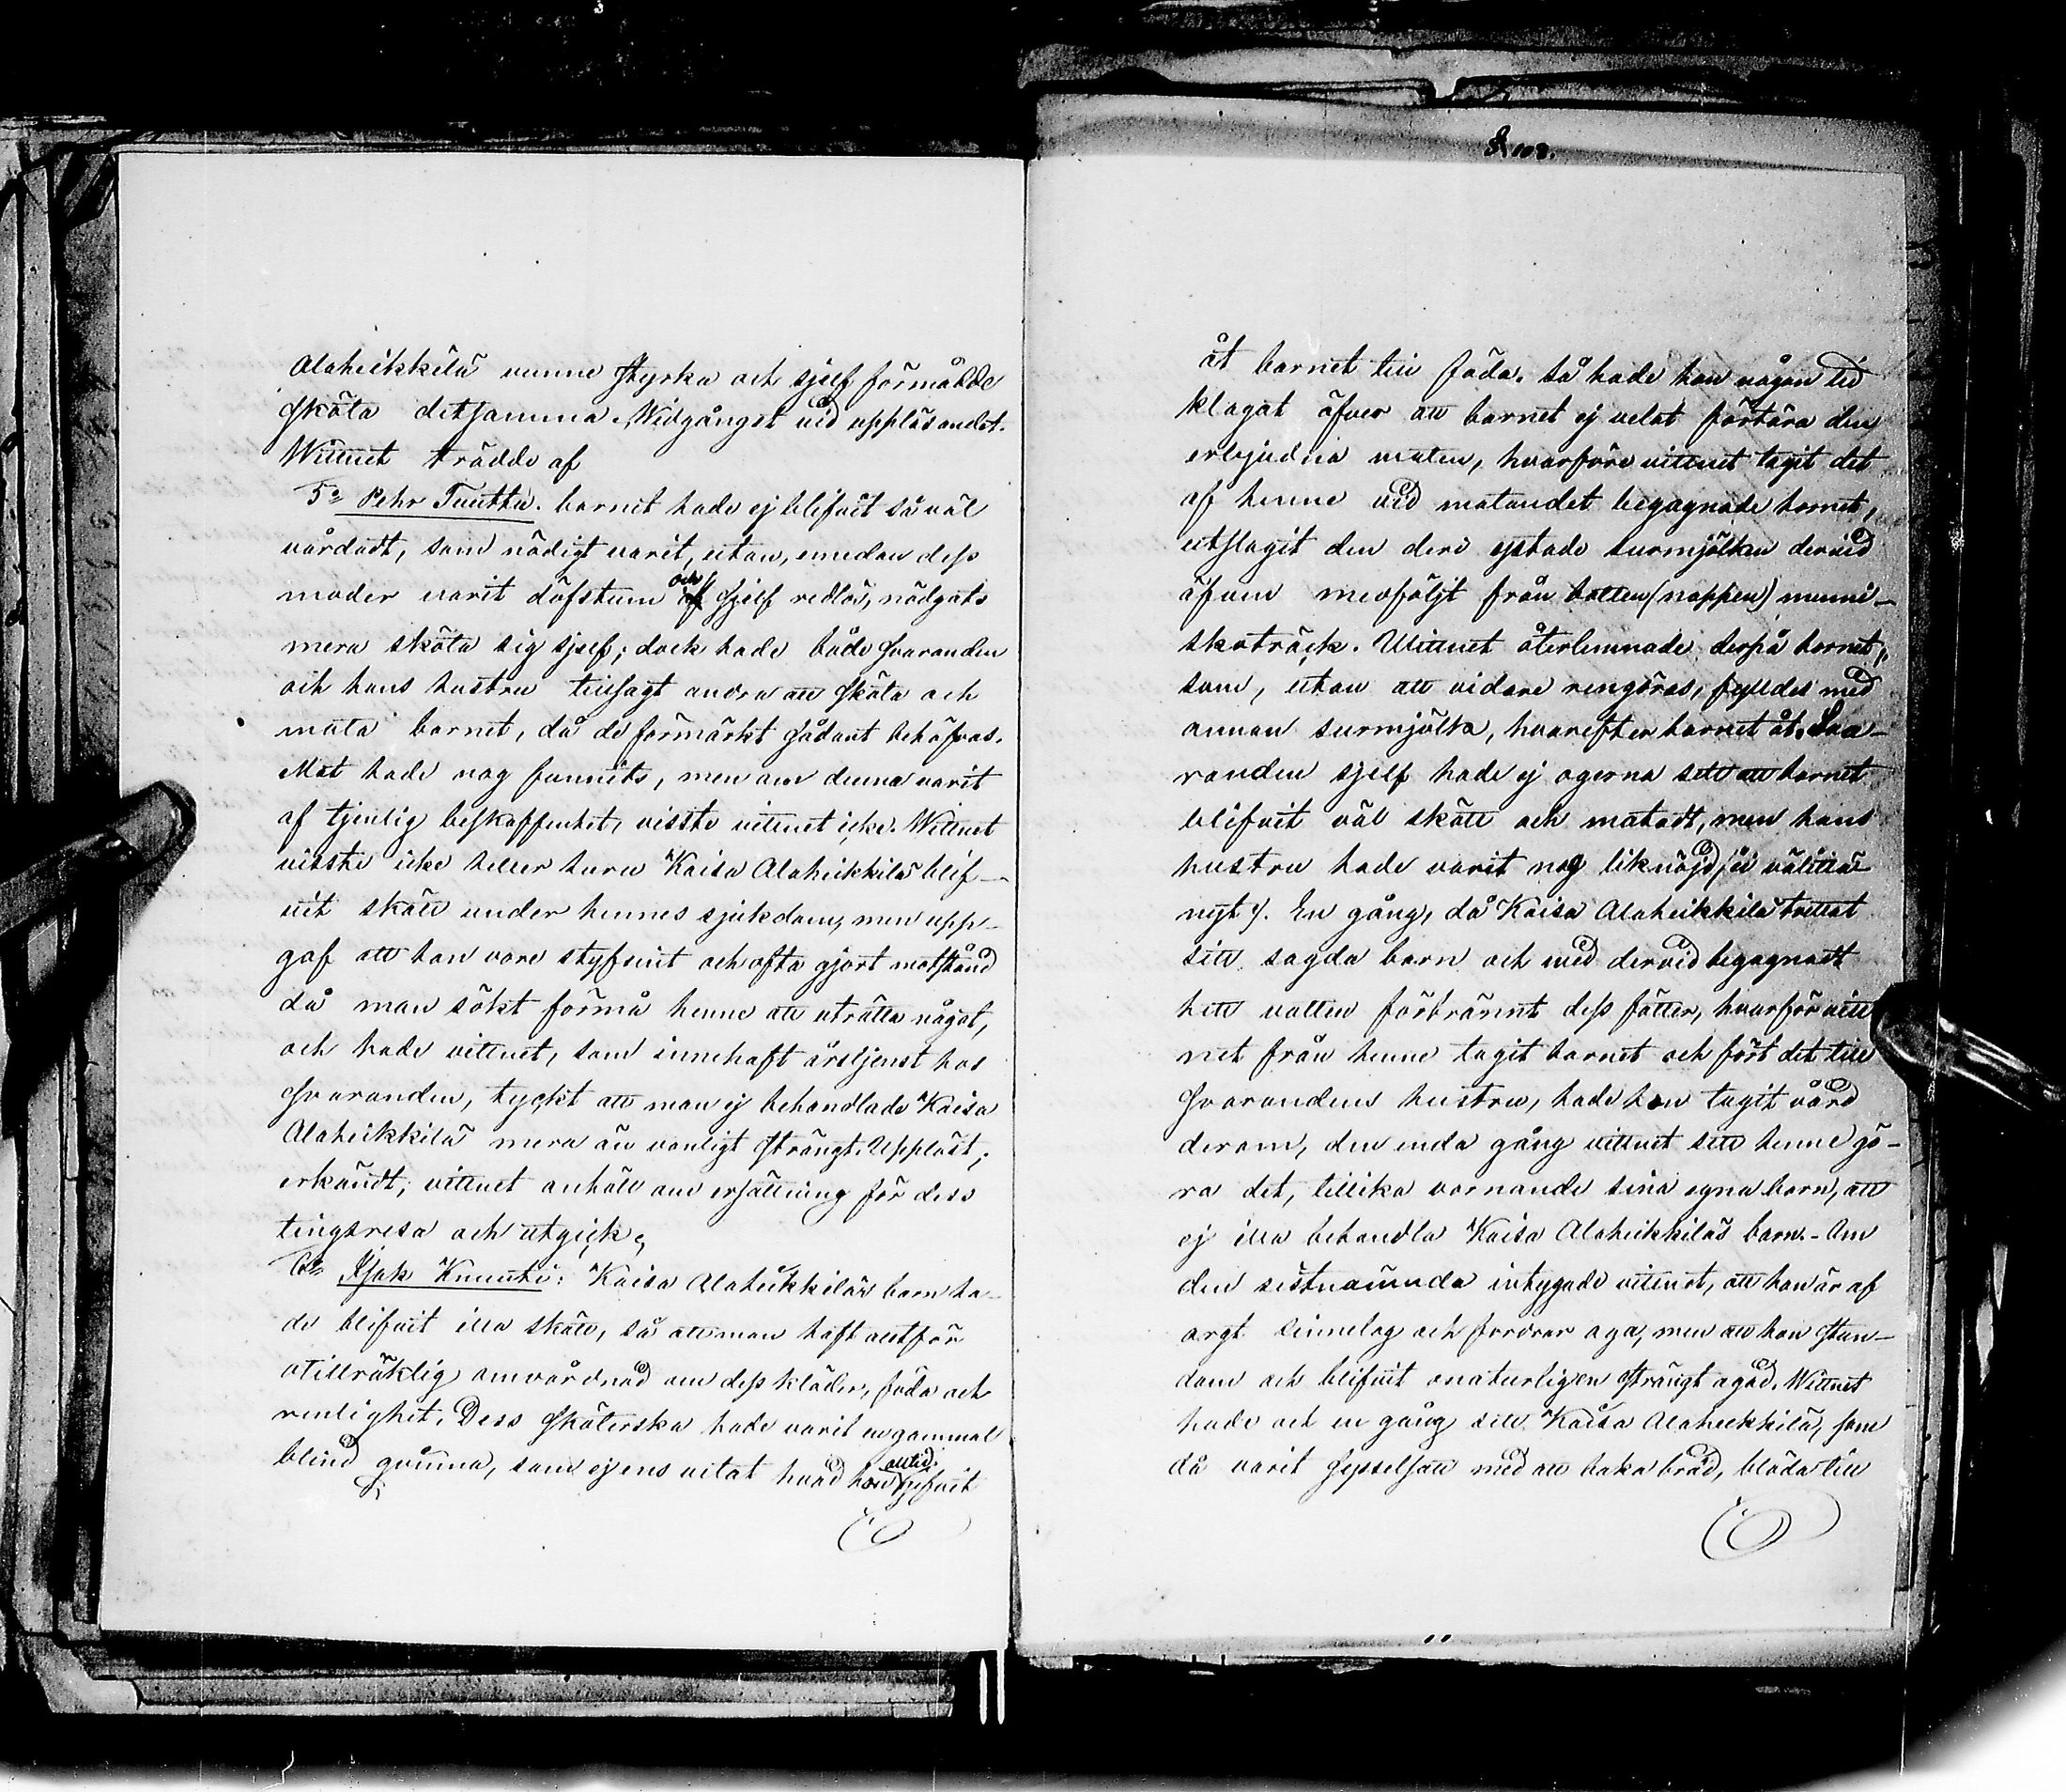 Alaheikkilä vunne styrka och sjelf förmådde
sköta detsamma. Widgånget vid uppläsandet.
Wittnet trädde af
5o Pehr Tuutti. barnet hade ej blifvit så väl
vårdadt, som nödigt varit, utan, emedan dess
moder varit döfstum och sjelf redlös, nödgats
mera sköta sig sjelf; dock hade både svaranden
och hans hustru tillsagt andra att sköta och
mata barnet, då de förmärkt sådant behöfvas.
Mat hade nog funnits, men om denna varit
af tjenlig beskaffenhet, visste vittnet icke. Wittnet
visste icke heller huru Kaisa Alaheikkilä blif-
vit skött under hennes sjukdom, men upp-
gaf att hon vore styfsint och ofta gjort motstånd
då man sökt förmå henne att uträtta något,
och hade vittnet, som innehaft årstjenst hos
svaranden, tyckt att man ej behandlade Kaisa
Alaheikkilä mera än vanligt strängt. Uppläst;
erkändt; vittnet anhöll om ersättning för dess
tingsresa och utgick,
6o Isak Knuuti: Kaisa Alaheikkiläs barn ha-
de blifvit illa skött, så att man haft alltför
otillräklig omvårdnad om dess kläder, föda och
renlighet. Dess sköterska hade varit en gammal
blind gumma, som ej ens vetat hvad hon alltid gifvit
8.103.
åt barnet till föda. Så hade hon någon tid
klagat öfver att barnet ej velat förtära den
erbjudna maten, hvarföre vittnet tagit det
af henne vid matandet begagnade hornet,
utslagit den deri ystade surmjölken dervid
äfven medföljt från botten (nappen) menni-
skoträck. Wittnet återlemnade derpå hornet,
som, utan att vidare rengöras, fylldes med
annan surmjölk, hvarefter barnet åt. Sva-
randen sjelf hade ej ogerna sett att barnet
blifvit väl skött och matadt, men hans
hustru hade varit nog liknöjd /: ei välittä-
nyt :/. En gång, då Kaisa Alaheikkilä tvettat
sitt sagda barn och med dervid begagnadt
hett vatten förbrännt dess fötter, hvarför vitt
net från henne tagit barnet och fört det till
svarandens hustru, hade hon tagit vård
derom, den enda gång vittnet sett henne gö-
ra det, tillika varnande sina egna barn, att
ej illa behandla Kaisa Alaheikkiläs barn. - Om
den sistnämnda intygade vittnet, att hon är af
argt sinnelag och fordrar aga, men att hon stun-
dom och blifvit onaturligen strängt agad. Wittnet
hade och en gång sett Kaisa Alaheikkilä, som
då varit sysselsatt med att baka bröd, blöda till